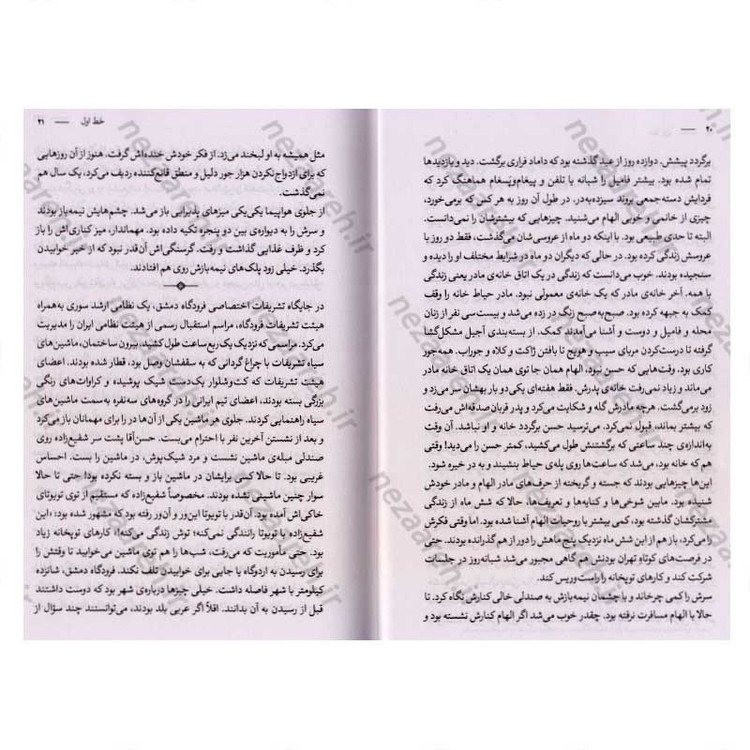 ۲۰
برگردد پیشش. دوازده روز از عید گذشته بود که داماد فراری برگشت. دید و بازدیدها
تمام شده بود. بیشتر فامیل را شبانه با تلفن و پیغام‌وپسغام هماهنگ کرد که
فردایش دسته‌جمعی بروند سیزده‌به‌در. در طول آن روز به هر کس که برمی‌خورد،
چیزی از خانمی و خوبی الهام می‌شنید. چیزهایی که بیشترشان را نمی‌دانست.
البته تا حدی طبیعی بود. با اینکه دو ماه از عروسی‌شان می‌گذشت، فقط دو روز با
عروسش زندگی کرده بود. در حالی که دیگران دو ماه در شرایط مختلف او را دیده و
سنجیده بودند. خوب می‌دانست که زندگی در یک اتاق خانه‌ی مادر یعنی زندگی
با همه. آخر خانه‌ی مادر که یک خانه‌ی معمولی نبود. مادر حیاط خانه را وقف
کمک به جبهه کرده بود. صبح‌به‌صبح زنگ در زده می‌شد و بیست سی نفر از زنان
محله و فامیل و دوست و آشنا می‌آمدند کمک. از بسته‌بندی آجیل مشکل‌گشا
گرفته تا درست‌کردن مربای سیب و هویج تا بافتن ژاکت و کلاه و جوراب. همه‌جور
کاری بود. وقت‌هایی که حسن نبود، الهام همان جا توی همان یک اتاق خانه مادر
می‌ماند و زیاد نمی‌رفت خانه‌ی پدرش. فقط هفته‌ای یکی دو بار بهشان سر می‌زد و
زود برمی‌گشت. هرچه مادرش گله و شکایت می‌کرد و پدر قربان‌صدقه‌اش می‌رفت
که بیشتر بماند، قبول نمی‌کرد. می‌ترسید حسن برگردد خانه و او نباشد. آن وقت
به‌اندازه‌ی چند ساعتی که برگشتنش طول می‌کشید، کمتر حسن را می‌دید! وقتی
هم که خانه بود، می‌شد که ساعت‌ها روی پله‌ی حیاط بنشیند و به در خیره شود.
این‌ها چیزهایی بودند که جسته و گریخته از حرف‌های مادر الهام و مادر خودش
شنیده بود. مابین شوخی‌ها و کنایه‌ها و تعریف‌ها. حالا که شش ماه از زندگی
مشترکشان گذشته بود، کمی بیشتر با روحیات الهام آشنا شده بود. اما وقتی فکرش
را می‌کرد، از این شش ماه نزدیک پنج ماهش را دور از هم گذرانده بودند. حتی
در فرصت‌های کوتاه تهران بودنش هم گاهی مجبور می‌شد شبانه‌روز در جلسات
شرکت کند و کارهای توپخانه را راست‌وریس کند.
سرش را کمی چرخاند و با چشمان نیمه‌بازش به صندلی خالی کنارش نگاه کرد. تا
حالا با الهام مسافرت نرفته بود. چقدر خوب می‌شد اگر الهام کنارش نشسته بود و
خط اول
۲۱
مثل همیشه به او لبخند می‌زد. از فکر خودش خنده‌اش گرفت. هنوز از آن روزهایی
که برای ازدواج‌نکردن هزار جور دلیل و منطق قانع‌کننده ردیف می‌کرد، یک سال هم
نمی‌گذشت.
از جلوی هواپیما یکی‌یکی میزهای پذیرایی باز می‌شد. چشم‌هایش نیمه‌باز بودند
و سرش را به دیواره‌ی بین دو پنجره تکیه داده بود. مهماندار، میز کناری‌اش را باز
کرد و ظرف غذایی گذاشت و رفت. گرسنگی‌اش آن‌قدر نبود که از خیر خوابیدن
بگذرد. خیلی زود پلک‌های نیمه‌بازش روی هم افتادند.
در جایگاه تشریفات اختصاصی فرودگاه دمشق، یک نظامی ارشد سوری به‌همراه
هیئت تشریفات فرودگاه، مراسم استقبال رسمی از هیئت نظامی ایران را مدیریت
می‌کرد. مراسمی که نزدیک یک ربع ساعت طول کشید. بیرون ساختمان، ماشین‌های
سیاه تشریفات با چراغ گردانی که به سقفشان وصل بود، قطار شده بودند. اعضای
هیئت تشریفات که کت‌وشلوار یک‌دست شیک پوشیده و کراوات‌های رنگی
بزرگی بسته بودند، اعضای تیم ایرانی را در گروه‌های سه‌نفره به سمت ماشین‌های
سیاه راهنمایی کردند. جلوی هر ماشین یکی از آن‌ها در را برای مهمانان باز می‌کرد
و بعد از نشستن آخرین نفر با احترام می‌بست. حسن‌آقا پشت سر شفیع‌زاده روی
صندلی مبله‌ی ماشین نشست و مرد شیک‌پوش، در ماشین را بست. احساس
غریبی بود. تا حالا کسی برایشان در ماشین باز و بسته نکرده بود! حتی تا حالا
سوار چنین ماشینی نشده بودند. مخصوصاً شفیع‌زاده که مستقیم از توی تویوتای
خاکی‌اش آمده بود. آن‌قدر با تویوتا این‌ور و آن‌ور رفته بود که مشهور شده بود: «این
شفیع‌زاده با تویوتا رانندگی نمی‌کند؛ توش زندگی می‌کند!» کارهای توپخانه زیاد
بود. حتی مأموریت که می‌رفت، شب‌ها را هم توی ماشین می‌خوابید تا وقتش را
برای رسیدن به اردوگاه یا جایی برای خوابیدن تلف نکند. فرودگاه دمشق، شانزده
کیلومتر با شهر فاصله داشت. خیلی چیزها درباره‌ی شهر بود که دوست داشتند
قبل از رسیدن به آن بدانند. اقلاً اگر عربی بلد بودند، می‌توانستند چند سؤال از
nezaareh.ir